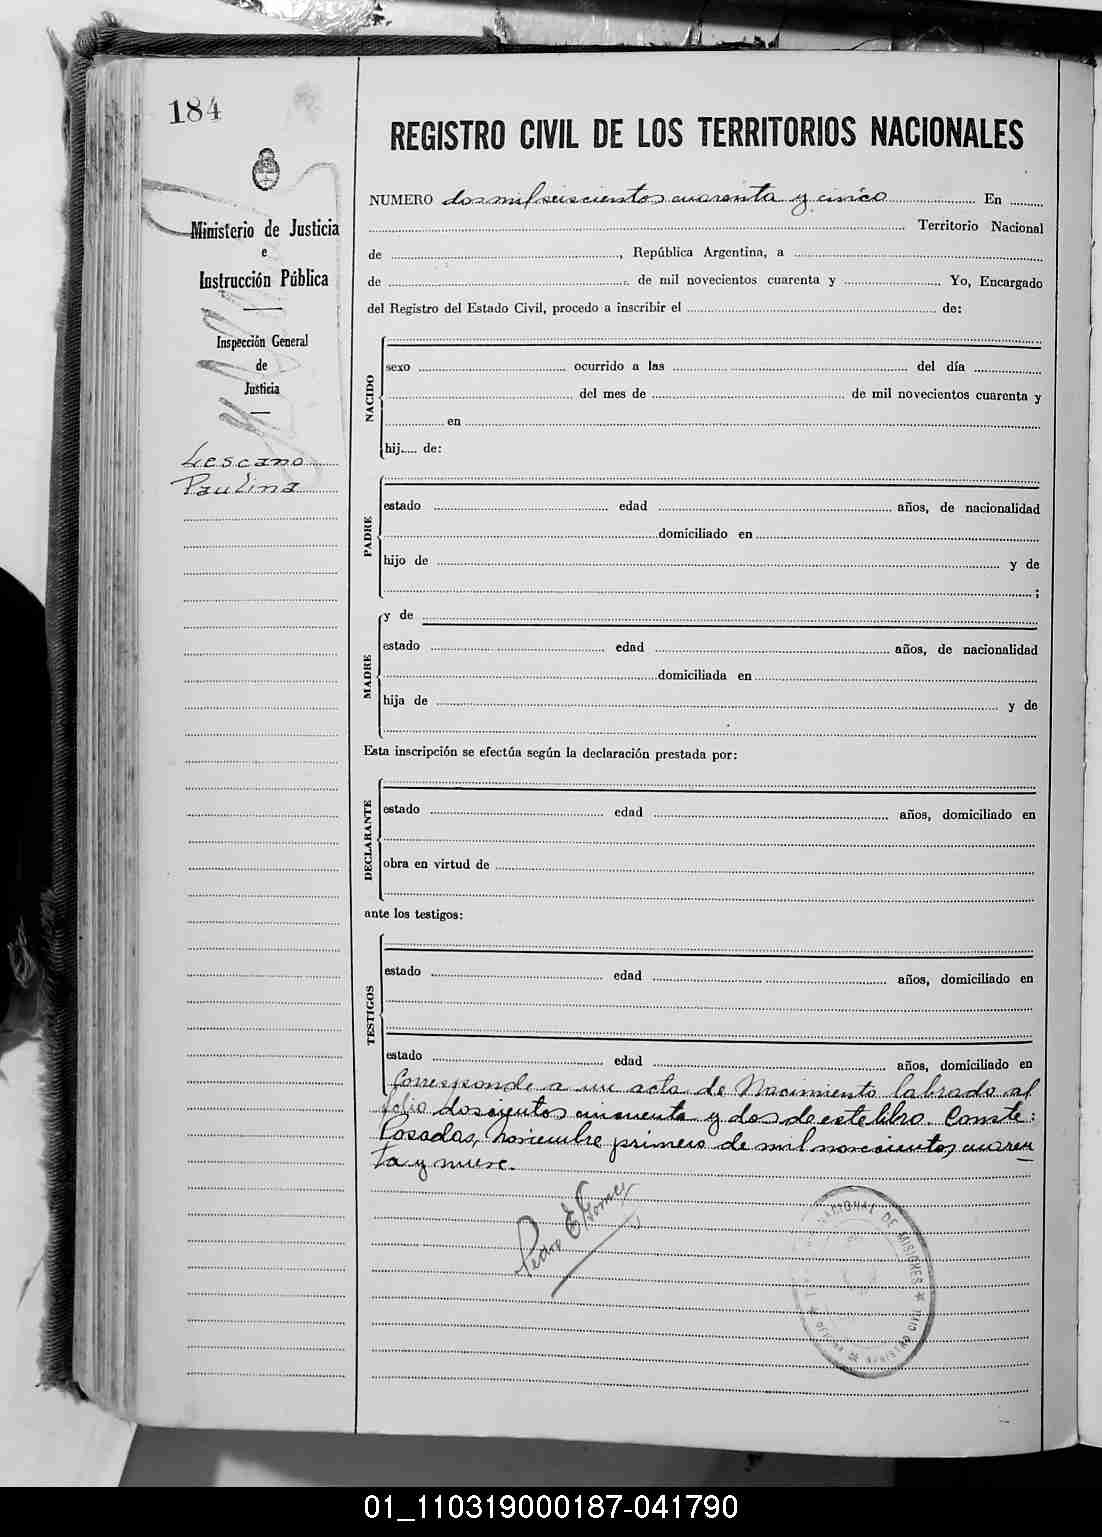 184
Ministerio de Justicia
e
Instrucción Pública
Inspección General
de
Justicia
Lescano
Paulina
REGISTRO CIVIL DE LOS TERRITORIOS NACIONALES
NUMERO dos mil seiscientos cuarenta y cinco En
Territorio Nacional
de , República Argentina, a
de de mil novecientos cuarenta y Yo, Encargado
del Registro del Estado Civil, procedo a inscribir el de:
NACIDO
sexo ocurrido a las del día
del mes de de mil novecientos cuarenta y
en
hij de:
PADRE
estado edad años, de nacionalidad
domiciliado en
hijo de y de
;
MADRE
y de
estado edad años, de nacionalidad
domiciliada en
hija de y de
Esta inscripción se efectúa según la declaración prestada por:
DECLARANTE
estado edad años, domiciliado en
obra en virtud de
ante los testigos:
TESTIGOS
estado edad años, domiciliado en
estado edad años, domiciliado en
Corresponde a un acta de Nacimiento labrado al
folio doscientos cincuenta y dos de este libro. Conste:
Posadas, noviembre primero de mil novecientos cuaren
ta y nueve.
Pedro E Gomez
NACIONAL DE MISIONES
DE REGISTRO CIVIL
01_110319000187-041790